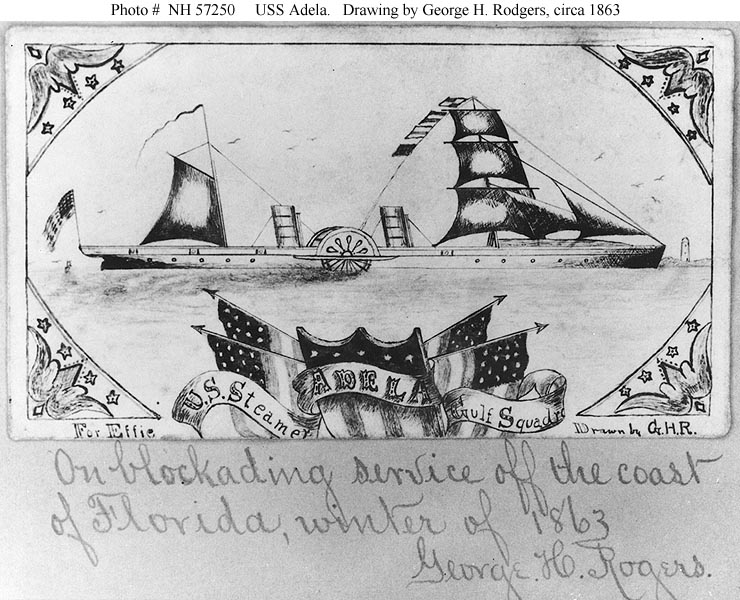 Photo # NH 57250 USS Adela. Drawing by George H. Rodgers, circa 1863
ADELA
U.S. Steamer
Gulf Squadro
For Effie
Drawn by G.H.R.
On blockading service off the coast
of Florida, winter of 1863
George. H. Rogers.